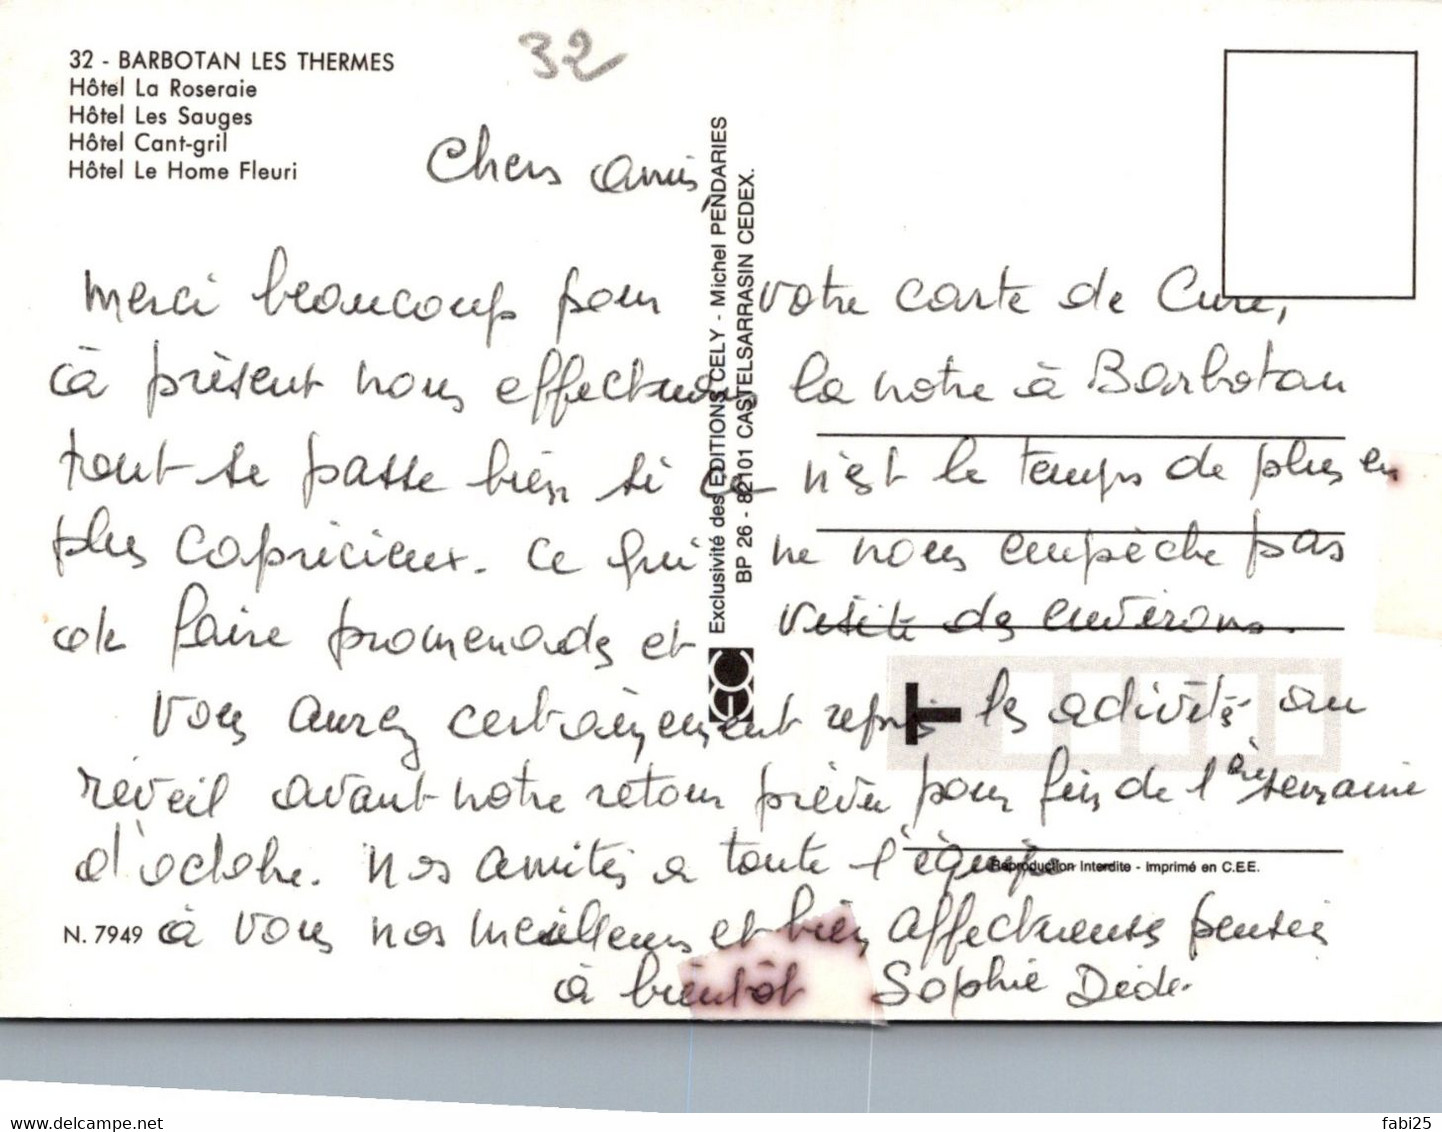 32 - BARBOTAN LES THERMES
Hôtel La Roseraie
Hôtel Les Sauges
Hôtel Cant-gril
Hôtel Le Home Fleuri
32
Chers amis,
Merci beaucoup pour votre carte de Cure,
à présent nous effectuons la notre à Barbotan
tout se passe bien si ce n'est le temps de plus en
plus capricieux. Ce qui ne nous empèche pas
de faire promenades et visite des environs.
Vous aurez certainement repris les activités au
réveil avant notre retour prévu pour fin de 1ère semaine
d'octobre. Nos amitiés a toute l'équipe
à vous nos meilleures et bien affectueuses pensées
à bientôt Sophie Dédé.
Exclusivité des EDITIONS CELY - Michel PENDARIES
BP 26 - 82101 CASTELSARRASIN CEDEX.
Reproduction Interdite - Imprimé en C.E.E.
N. 7949
www.delcampe.net
fabi25